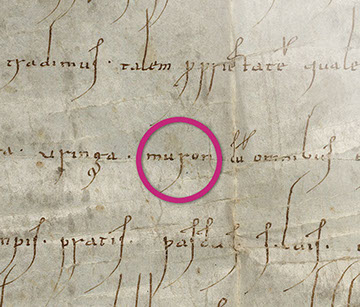 tradimus · talem ꝓprietatē quale
a · uringa · muron cū omnibus
mpis · pratis · pascuis